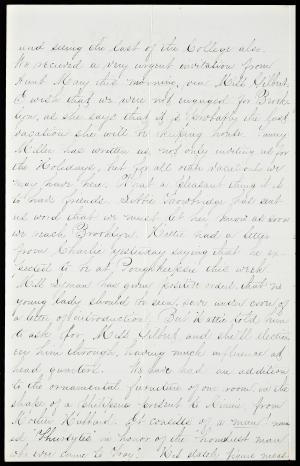 and seeing the last of the College also.
We received a very urgent invitation from
Aunt Mary this morning, via Miss Gilbert.
I wish that we were not engaged for Brook-
lyn, as she says that it is probably the last
vacation she will be keeping house. Amy
Miller has written us, not only inviting us for
the Holidays, but for all other vacations we
may have here. What a pleasant thing it is
to have friends. Trowbridge has sent
us word that we must let her know as soon
we reach Brooklyn. Hattie had a letter
from Charlie yesterday saying that he ex-
pected to be at Poughkeepsie this week.
Miss Lyman has given positive orders that no
young lady should be seen, save when
a letter of introduction. But Hattie told him
to ask for Miss Gilbert and she'll
him through, having much influence at
head quarters. We have had an addition
to the ornamental furniture of our room in the
shape of a present to Minnie, from
Mother Hubbard. It consists of a man nam-
ed "Thurstyles" in honor of the "homliest man
who ever came to Troy." His black